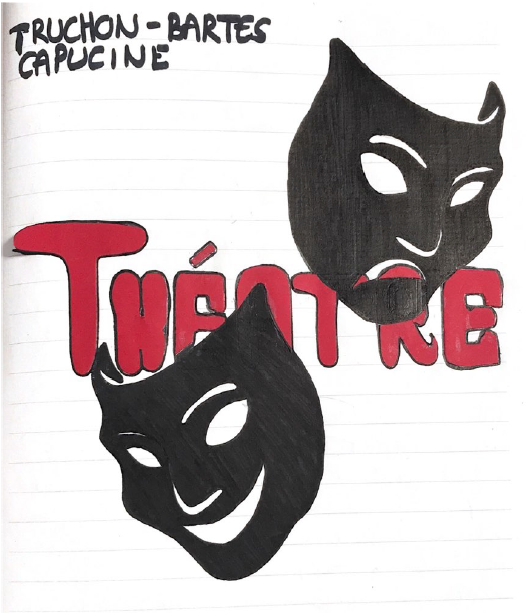 TRUCHON-BARTES
CAPUCINE
THÉATRE